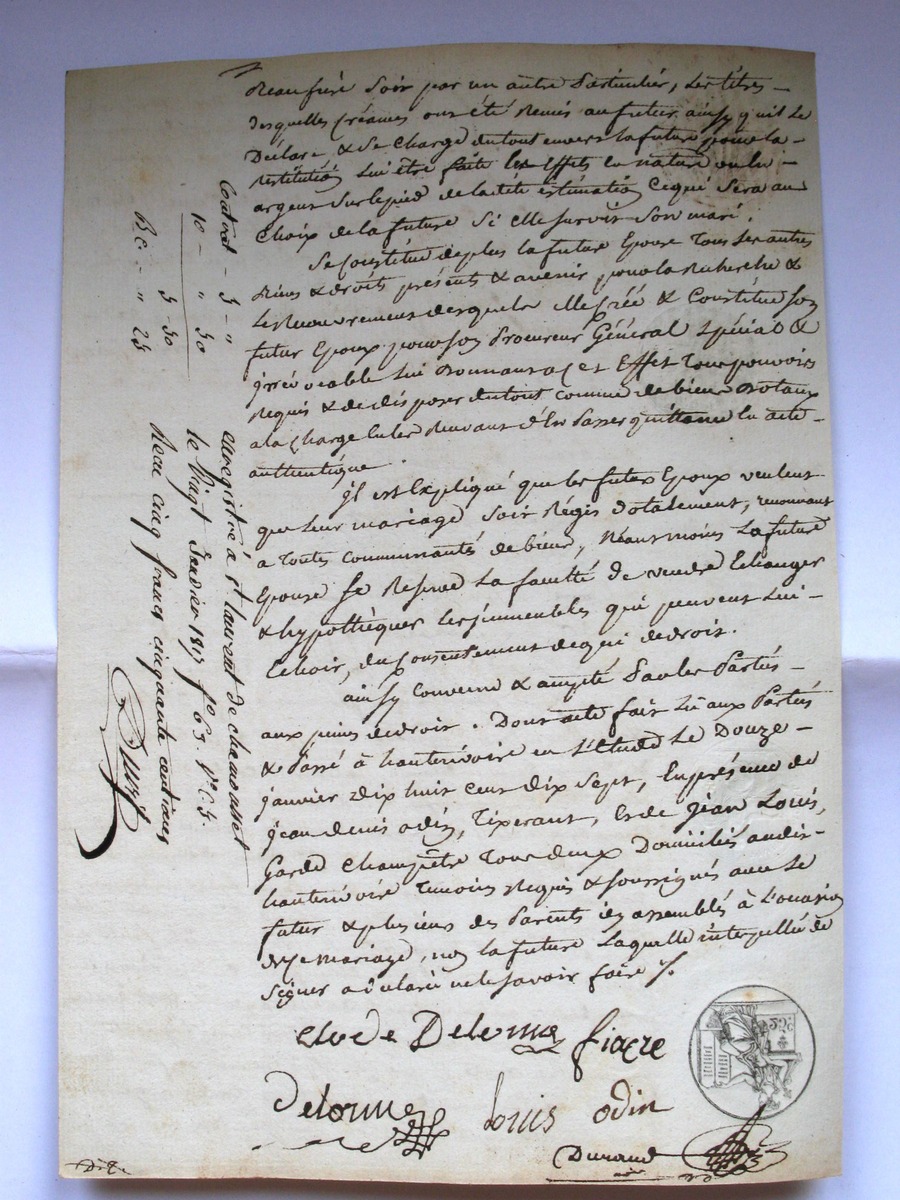 soit par un autre Particulier, les titres
desquelles Créances ont été Remis au futur ainsy qu'il le
Déclare & se Charge du tout envers la future pour la
restitution lui être faite les Effets en nature ou en
argent sur le pied de la dite estimation Ce qui sera au
Choix de la future Si elle survit Son mari.
Se Constitue de plus la future Epouse Tous ses autres
Biens & droits présents & avenir pour la Recherche &
le Recouvrement desquels elle Crée & Constitue Son
futur Epoux pour son Procureur Général Spécial &
irrévocable Lui Donnant à Cet Effet Tous pouvoirs
Requis & de disposer du tout Comme de biens Dotaux
a la Charge En les Recevant d'En Passer quittance En acte
authentique.
il est Expliqué que les futurs Epoux veulent
que Leur mariage Soit Régis Dotalement, renonçant
a Toutes Communautés de biens, Néantmoins La future
Epouse Se Reserve La faculté de vendre Echanger
& hypothéquer Les immeubles qui peuvent Lui
Echoir, du Consentement de qui de droit.
ainsy Convenu & accepté Par les Parties
aux peines de droit. Dont acte fait Lu aux Parties
& Passé à hauterivoire en L'Etude Le Douze
janvier Dix huit cent dix Sept, En présence de
jean denis odin, Tixerant, & de jean Louis,
Garde Champêtre Tous deux Domiciliés audit
hauterivoire Temoins Requis & Soussignés avec Le
futur & plusieurs des Parents ici assemblés à L'occasion
du mariage, non la future Laquelle interpellée de
Signer a déclaré ne le Savoir faire %.
Delorme fiacre
Delorme louis odin
Durand
Contrat - 3 - "
10 - " 30
3 - 30
" 25
enregistré à st laurent de chamousset
le Vingt Janvier 1817 f° 63 V° C. 5.
Recu cinq francs cinquante centimes